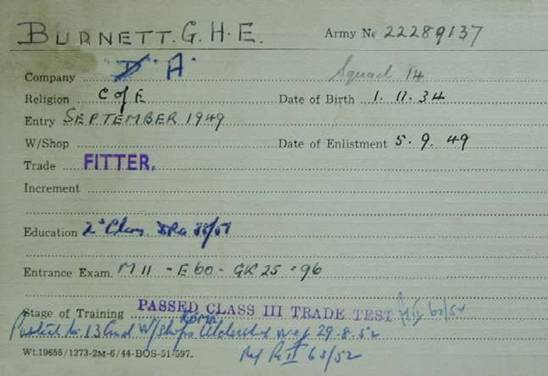 BURNETT. G. H. E. Army No 22289137
Company D A Squad 14
Religion C of E Date of Birth 1. 11. 34
Entry SEPTEMBER 1949
W/Shop Date of Enlistment 5. 9. 49
Trade FITTER.
Increment
Education 2nd Class
Entrance Exam. M 11 - E 60 - GK 25 = 96
Stage of Training PASSED CLASS III TRADE TEST
Posted to 13 Cmd W/Shops Aldershot wef 29.8.52
Ref Pt II 63/52
Wt.19655/1273-2M-6/44-BOS-51/597.